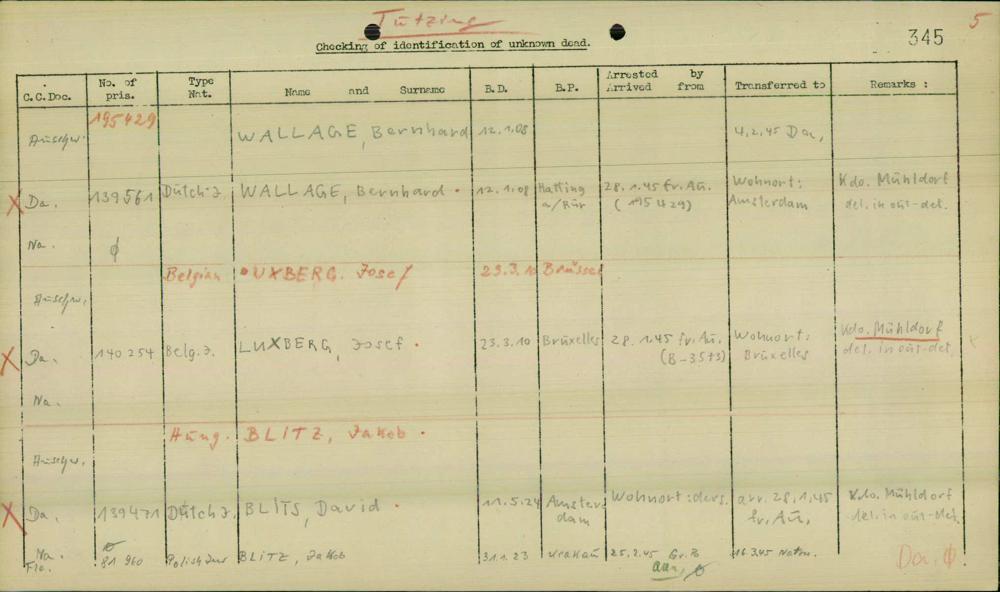 Tutzing
5
345
Checking of identification of unknown dead.
C.C.Doc. No. of pris. Type Nat. Name and Surname B.D. B.P. Arrested by Arrived from Transferred to Remarks :
195429
Auschw. WALLAGE, Bernhard 12.1.08 4.2.45 Da,
X Da. 139561 Dutch J. WALLAGE, Bernhard. 12.1.08 Hatting a/Rur 28.1.45 fr. Au. (195429) Wohnort: Amsterdam Kdo. Mühldorf det. in out-det.
Na. ϕ
Belgian LUXBERG. Josef 23.3.10 Brüssel
Auschw.
X Da. 140254 Belg. J. LUXBERG, Josef. 23.3.10 Bruxelles 28.1.45 fr. Au. Wohnort: Bruxelles Kdo. Mühldorf det. in out-det.
Na.
Hung. BLITZ, Jakob.
Auschw.
X Da. 139471 Dutch J. BLITS, David. 11.5.24 Amsterdam Wohnort: ders. arr. 28.1.45 fr. Au. Kdo. Mühldorf det. in out-det.
Na.
Flo. 81960 Polish Jew BLITZ, Jakob 31.1.23 Krakau 25.2.45 Gr. R 16.3.45 Natzw.
Au,
Da. ϕ.